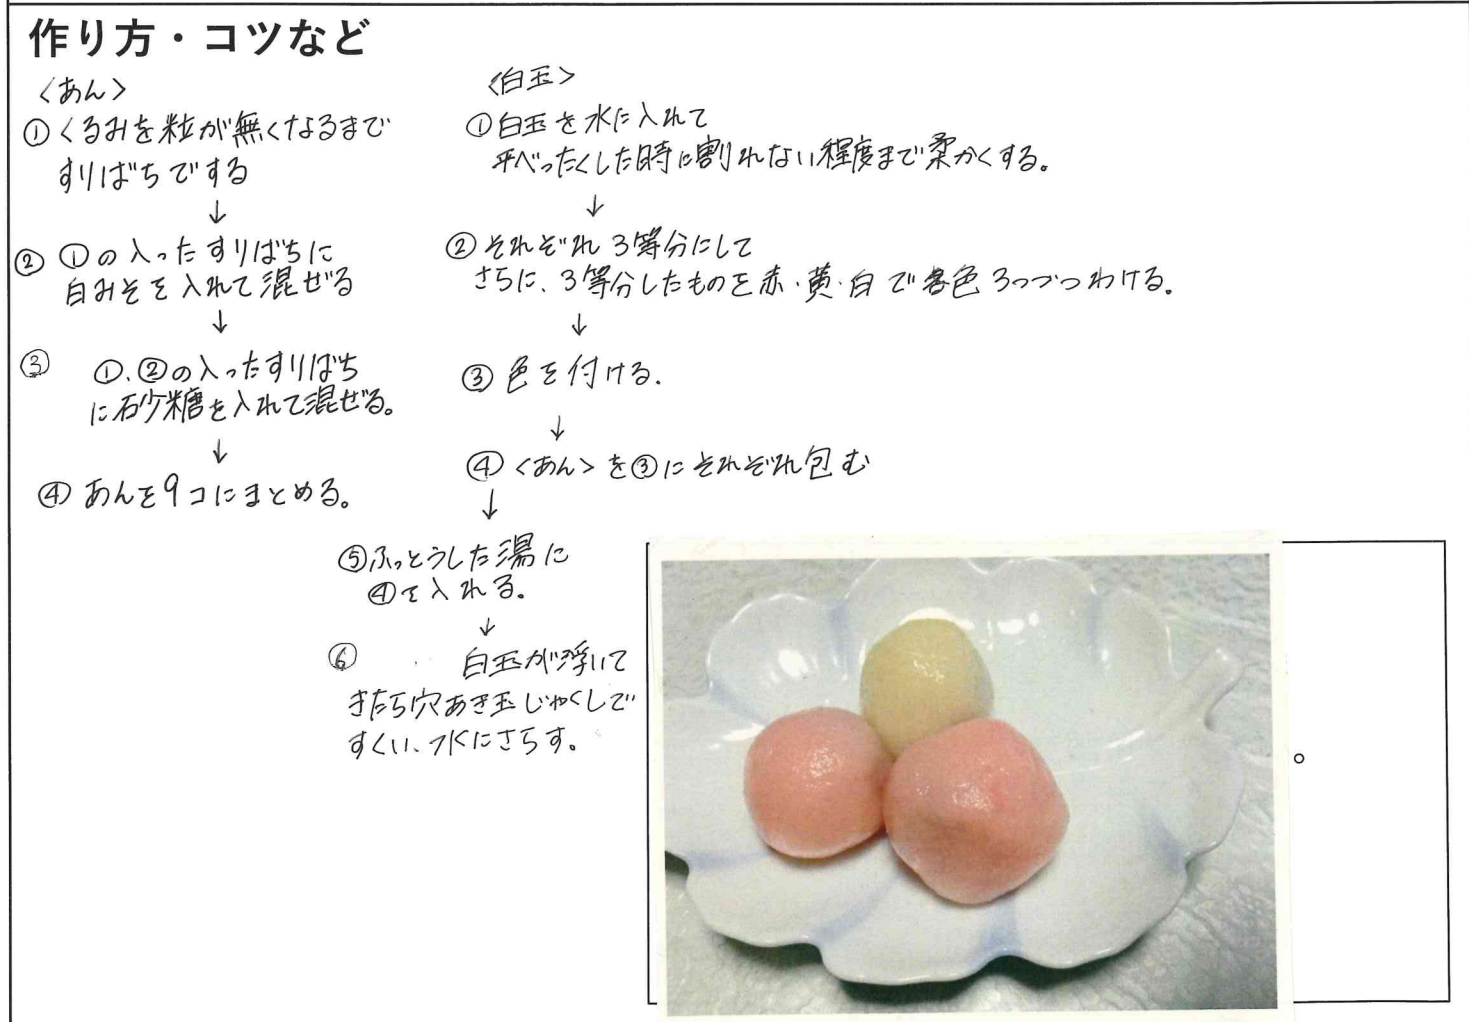 作り方・コツなど
〈あん〉
①くるみを粒が無くなるまで
すりばちでする
↓
② ①の入ったすりばちに
白みそを入れて混ぜる
↓
③ ①、②の入ったすりばち
に砂糖を入れて混ぜる。
↓
④ あんを9コにまとめる。
〈白玉〉
①白玉を水に入れて
平べったくした時に割れない程度まで柔かくする。
↓
②それぞれ3等分にして
さらに、3等分したものを赤・黄・白で各色3つづつわける。
↓
③ 色を付ける。
↓
④〈あん〉を③にそれぞれ包む
↓
⑤ふっとうした湯に
④を入れる。
↓
⑥ 白玉が浮いて
きたら穴あき玉じゃくしで
すくい、水にさらす。
。